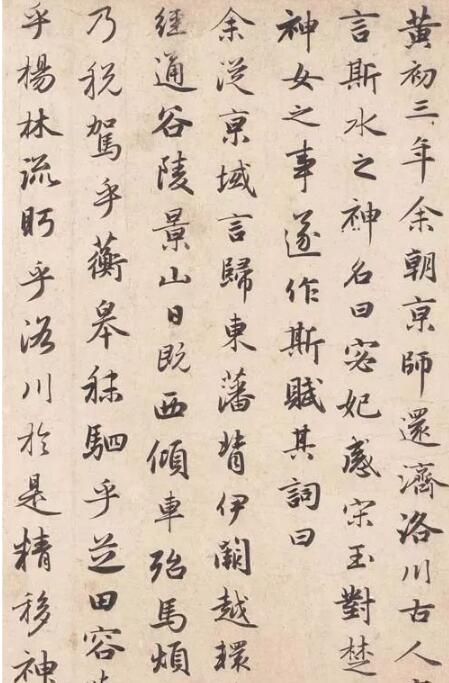 黃初三年余朝京師還濟洛川古人
言斯水之神名曰宓妃感宋玉對楚
神女之事遂作斯賦其詞曰
余從京域言歸東藩背伊闕越轘
經通谷陵景山日既西傾車殆馬煩
乃稅駕乎蘅皋秣駟乎芝田容
乎楊林流眄乎洛川於是精移神